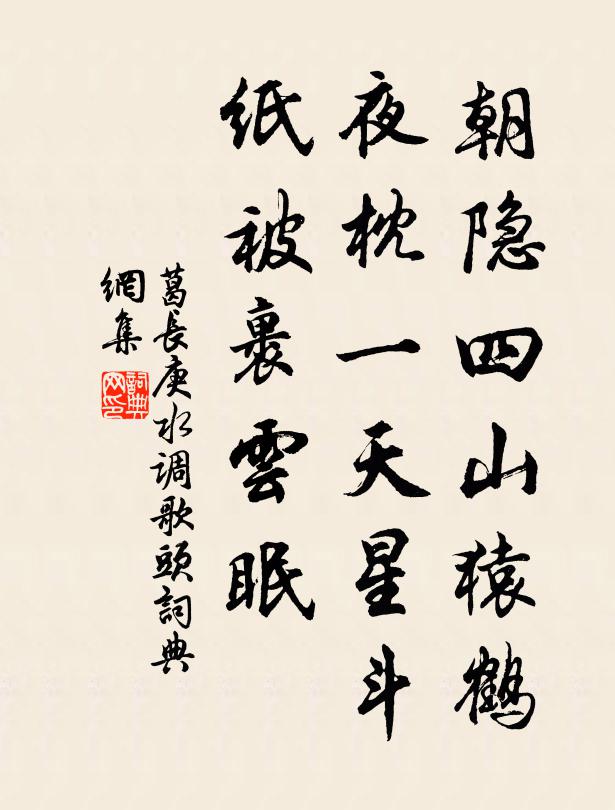 朝隐四山猿鶴
夜枕一天星斗
纸被裹雲眠
葛長庚水调歌頭詞典
網集
詞典
网印